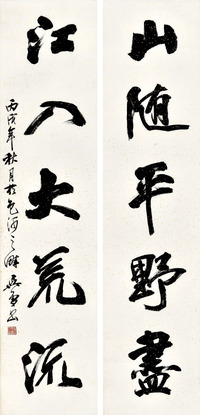 山随平野盡
江入大荒流
丙戌年秋月於